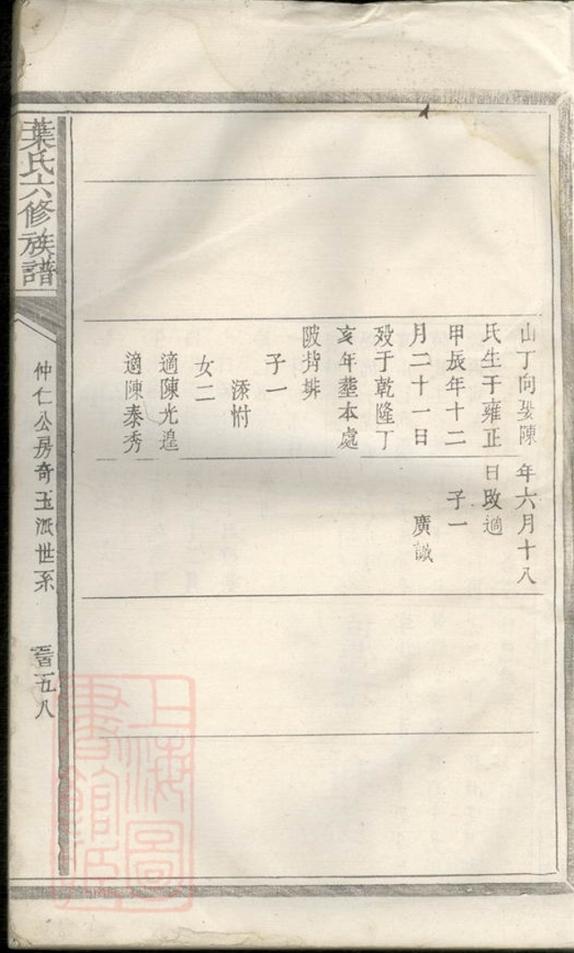 山丁向娶陳
氏生于雍正
甲辰年十二
月二十一日
殁于乾隆丁
亥年塟本處
陂背塝
子一
添柎
女二
適陳光遑
適陳泰秀
年六月十八
日改適
子一
廣誠
葉氏六修族譜
仲仁公房奇玉派世系
五八
上海圖書館藏